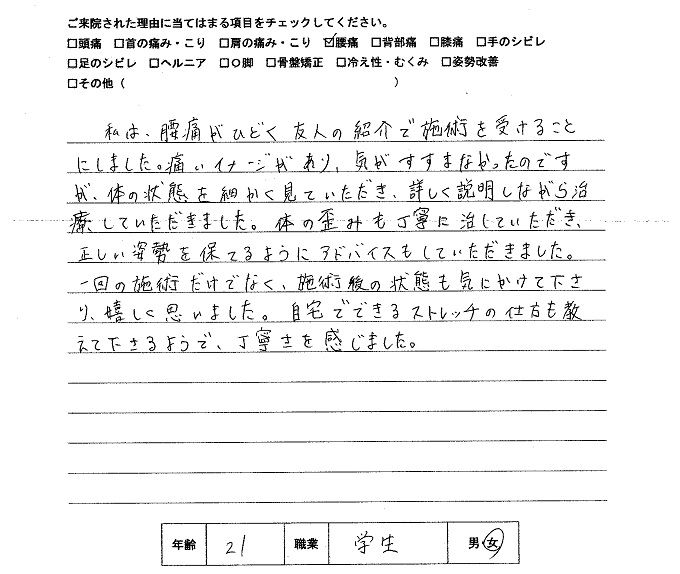 ご来院された理由に当てはまる項目をチェックしてください。
□頭痛 □首の痛み・こり □肩の痛み・こり ☑腰痛 □背部痛 □膝痛 □手のシビレ
□足のシビレ □ヘルニア □O脚 □骨盤矯正 □冷え性・むくみ □姿勢改善
□その他（ ）
私は、腰痛がひどく友人の紹介で施術を受けること
にしました。痛いイメージがあり、気がすすまなかったのです
が、体の状態を細かく見ていただき、詳しく説明しながら治
療していただきました。体の歪みも丁寧に治していただき、
正しい姿勢を保てるようにアドバイスもしていただきました。
一回の施術だけでなく、施術後の状態も気にかけて下さ
り、嬉しく思いました。自宅でできるストレッチの仕方も教
えて下さるようで、丁寧さを感じました。
年齢 21 職業 学生 男・女